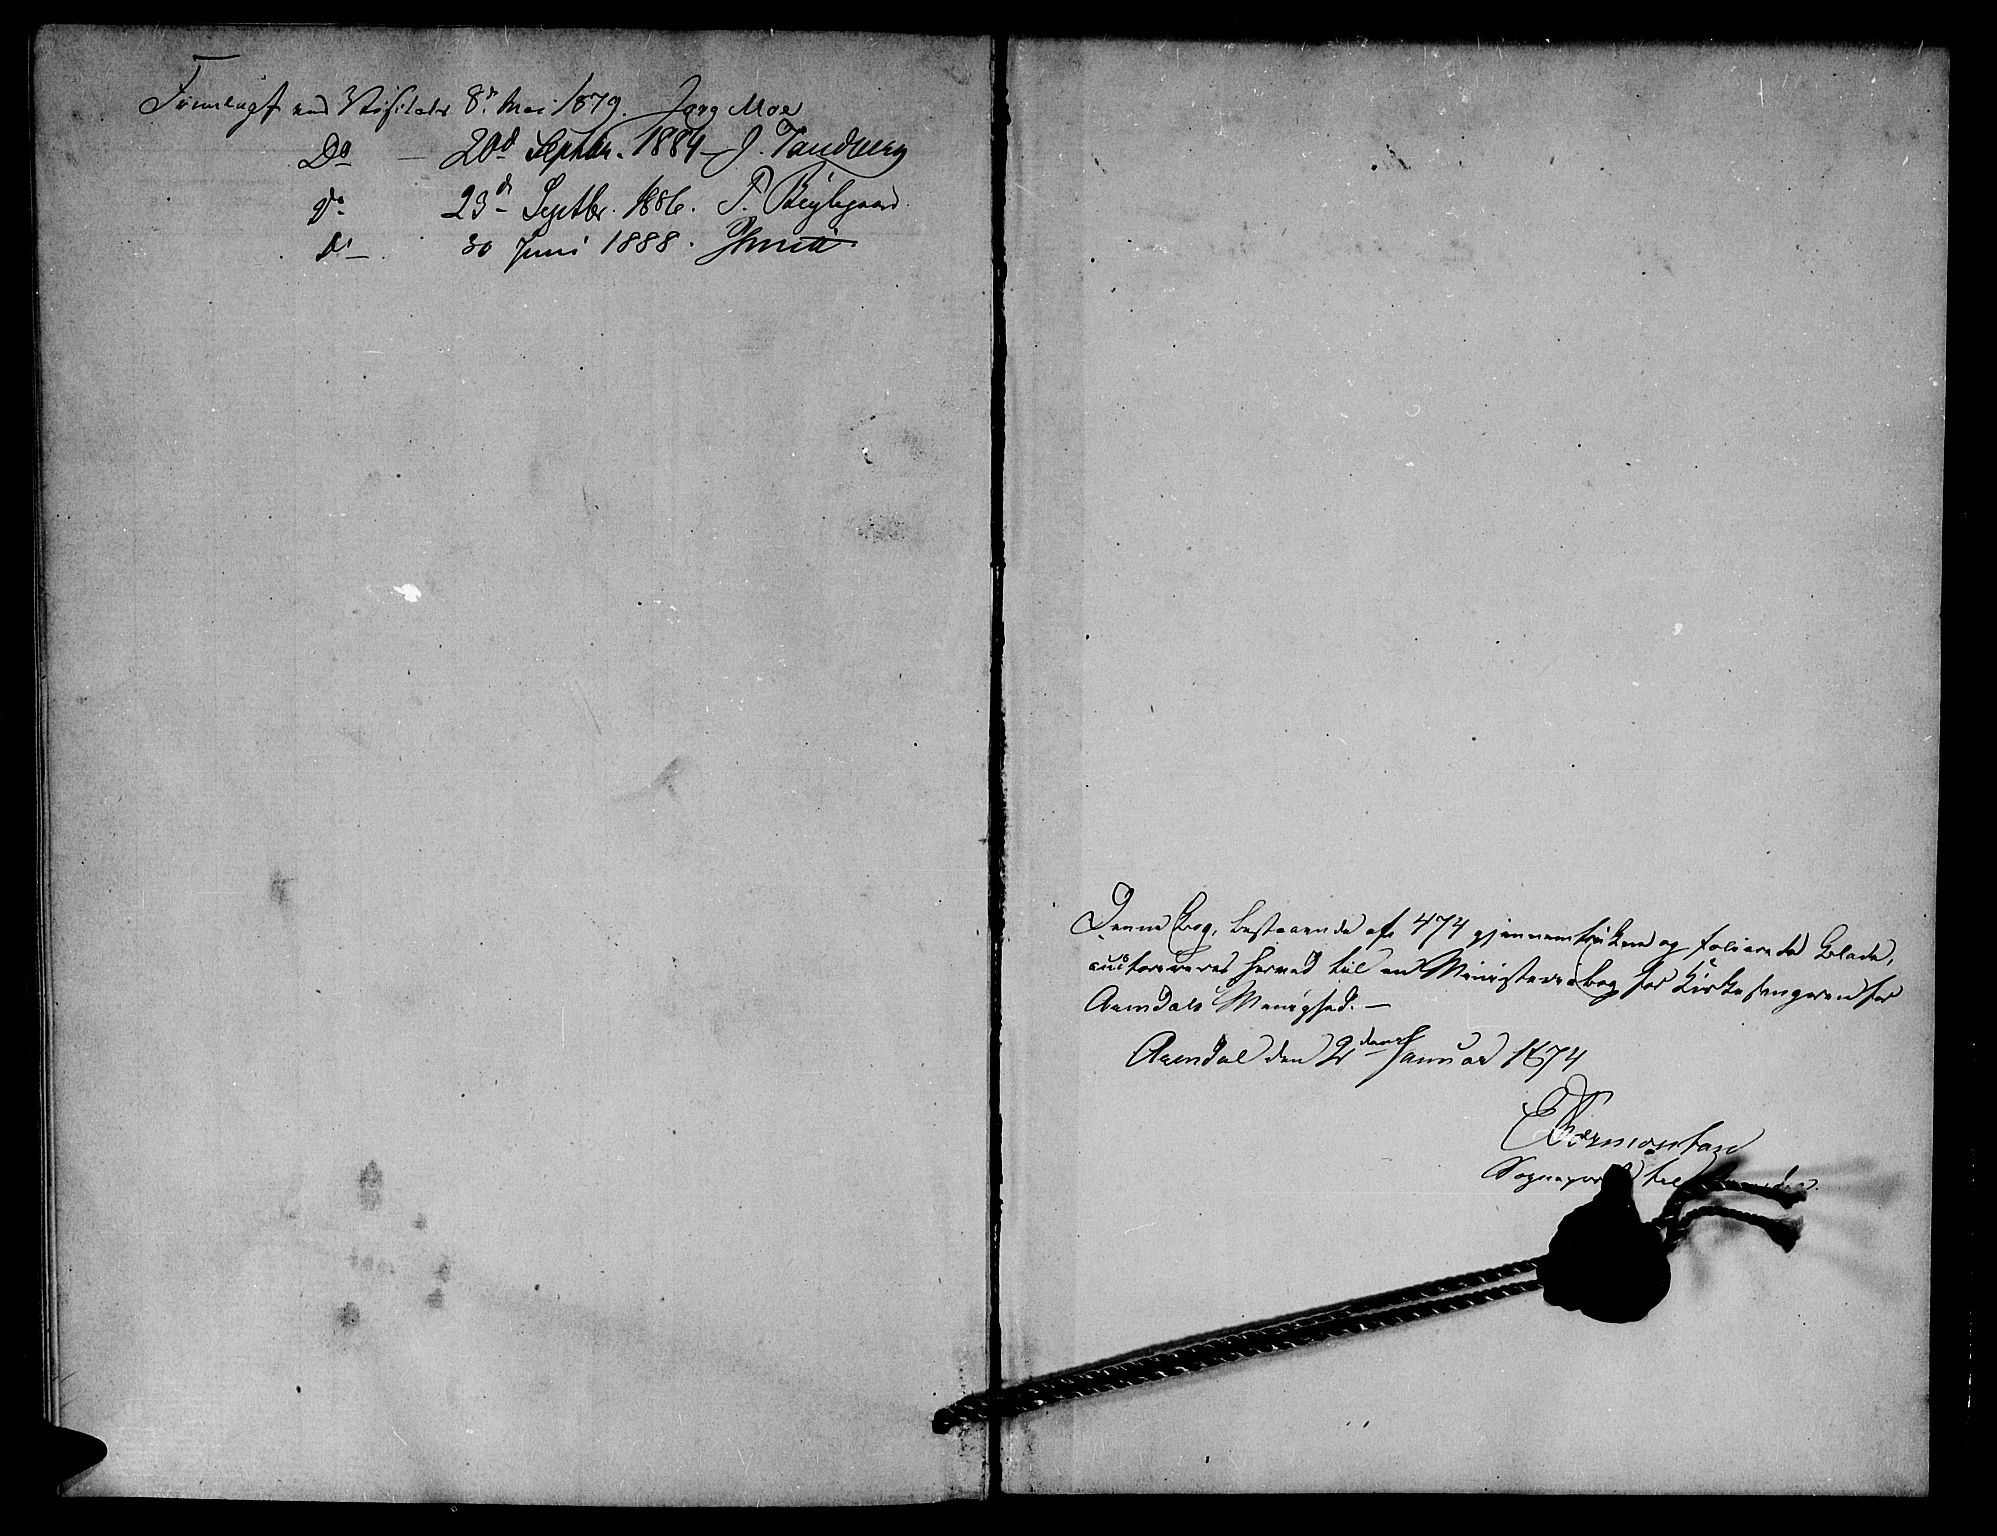 Fremlagt ved Visitats 8de Mai 1879. Jørg Moe
Do — 20d Septbr. 1884 — J. Tandberg
Do 23d Septbr. 1886. P.
Do 30 Juni 1888. Smitt
Denne Bog, bestaaende af 474 gjennemtrukne og folierede Blade,
autoriseres herved til en Ministerialbog for Kirkesangeren for
Arendals Menighed. —
Arendal den 2den Januar 1874
Sognepr til